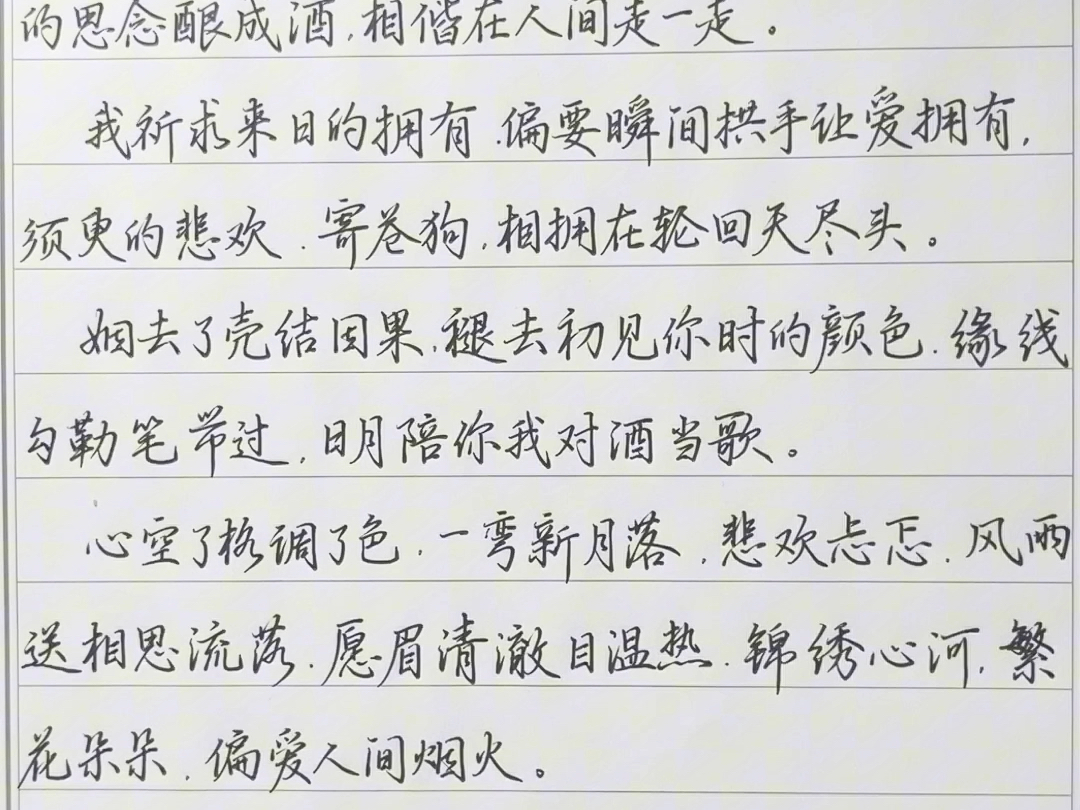 的思念酿成酒,相偕在人间走一走。
我祈求来日的拥有,偏要瞬间拱手让爱拥有,
须臾的悲欢,寄苍狗,相拥在轮回天尽头。
姻去了壳结因果,褪去初见你时的颜色,缘线
勾勒笔带过,日月陪你我对酒当歌。
心空了格调了色,一弯新月落,悲欢忐忑,风雨
送相思流落,愿眉清澈目温热,锦绣心河,繁
花朵朵,偏爱人间烟火。